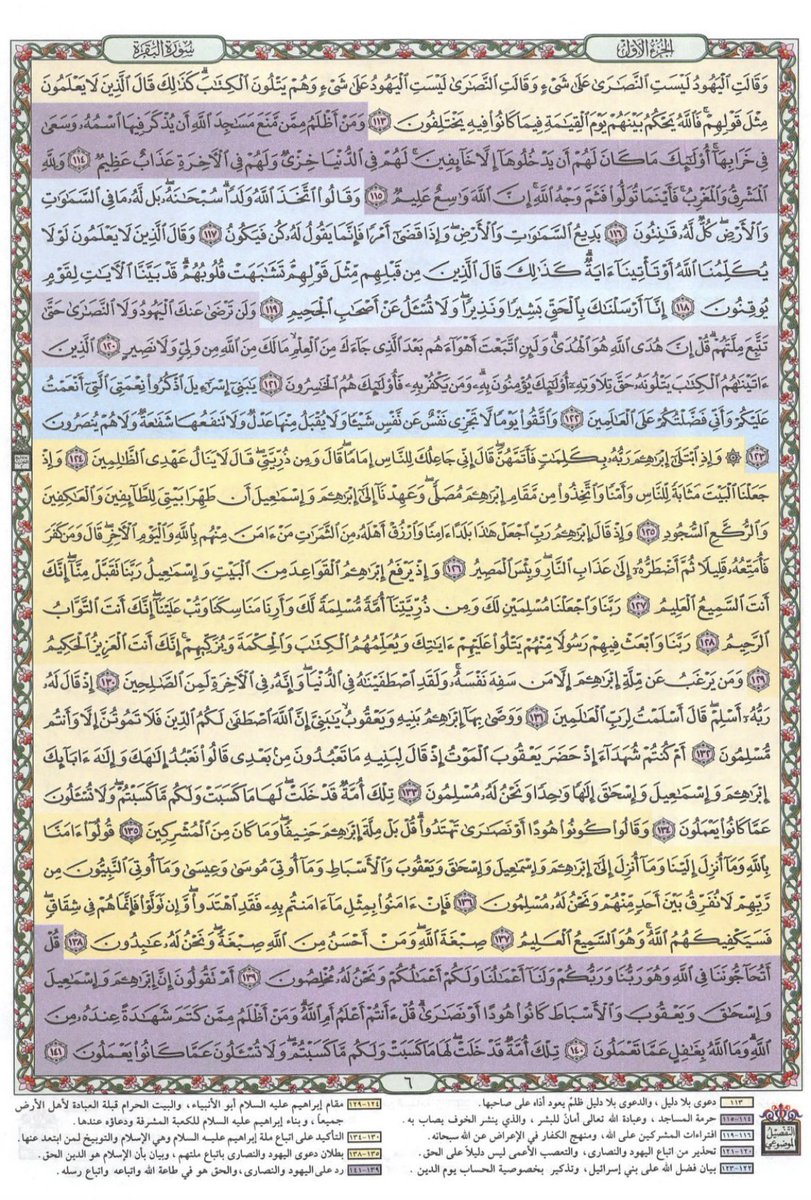 الجزء الأول
سورة البقرة
وَقَالَتِ ٱلۡيَهُودُ لَيۡسَتِ ٱلنَّصَٰرَىٰ عَلَىٰ شَيۡءٖ وَقَالَتِ ٱلنَّصَٰرَىٰ لَيۡسَتِ ٱلۡيَهُودُ عَلَىٰ شَيۡءٖ وَهُمۡ يَتۡلُونَ ٱلۡكِتَٰبَۗ كَذَٰلِكَ قَالَ ٱلَّذِينَ لَا يَعۡلَمُونَ
مِثۡلَ قَوۡلِهِمۡۚ فَٱللَّهُ يَحۡكُمُ بَيۡنَهُمۡ يَوۡمَ ٱلۡقِيَٰمَةِ فِيمَا كَانُواْ فِيهِ يَخۡتَلِفُونَ ١١٣ وَمَنۡ أَظۡلَمُ مِمَّن مَّنَعَ مَسَٰجِدَ ٱللَّهِ أَن يُذۡكَرَ فِيهَا ٱسۡمُهُۥ وَسَعَىٰ
فِي خَرَابِهَآۚ أُوْلَٰٓئِكَ مَا كَانَ لَهُمۡ أَن يَدۡخُلُوهَآ إِلَّا خَآئِفِينَۚ لَهُمۡ فِي ٱلدُّنۡيَا خِزۡيٞ وَلَهُمۡ فِي ٱلۡأٓخِرَةِ عَذَابٌ عَظِيمٞ ١١٤ وَلِلَّهِ
ٱلۡمَشۡرِقُ وَٱلۡمَغۡرِبُۚ فَأَيۡنَمَا تُوَلُّواْ فَثَمَّ وَجۡهُ ٱللَّهِۚ إِنَّ ٱللَّهَ وَٰسِعٌ عَلِيمٞ ١١٥ وَقَالُواْ ٱتَّخَذَ ٱللَّهُ وَلَدٗاۗ سُبۡحَٰنَهُۥۖ بَل لَّهُۥ مَا فِي ٱلسَّمَٰوَٰتِ
وَٱلۡأَرۡضِۖ كُلّٞ لَّهُۥ قَٰنِتُونَ ١١٦ بَدِيعُ ٱلسَّمَٰوَٰتِ وَٱلۡأَرۡضِۖ وَإِذَا قَضَىٰٓ أَمۡرٗا فَإِنَّمَا يَقُولُ لَهُۥ كُن فَيَكُونُ ١١٧ وَقَالَ ٱلَّذِينَ لَا يَعۡلَمُونَ لَوۡلَا
يُكَلِّمُنَا ٱللَّهُ أَوۡ تَأۡتِينَآ ءَايَةٞۗ كَذَٰلِكَ قَالَ ٱلَّذِينَ مِن قَبۡلِهِم مِّثۡلَ قَوۡلِهِمۡۘ تَشَٰبَهَتۡ قُلُوبُهُمۡۗ قَدۡ بَيَّنَّا ٱلۡأٓيَٰتِ لِقَوۡمٖ
يُوقِنُونَ ١١٨ إِنَّآ أَرۡسَلۡنَٰكَ بِٱلۡحَقِّ بَشِيرٗا وَنَذِيرٗاۖ وَلَا تُسۡـَٔلُ عَنۡ أَصۡحَٰبِ ٱلۡجَحِيمِ ١١٩ وَلَن تَرۡضَىٰ عَنكَ ٱلۡيَهُودُ وَلَا ٱلنَّصَٰرَىٰ حَتَّىٰ
تَتَّبِعَ مِلَّتَهُمۡۗ قُلۡ إِنَّ هُدَى ٱللَّهِ هُوَ ٱلۡهُدَىٰۗ وَلَئِنِ ٱتَّبَعۡتَ أَهۡوَآءَهُم بَعۡدَ ٱلَّذِي جَآءَكَ مِنَ ٱلۡعِلۡمِ مَا لَكَ مِنَ ٱللَّهِ مِن وَلِيّٖ وَلَا نَصِيرٍ ١٢٠ ٱلَّذِينَ
ءَاتَيۡنَٰهُمُ ٱلۡكِتَٰبَ يَتۡلُونَهُۥ حَقَّ تِلَاوَتِهِۦٓ أُوْلَٰٓئِكَ يُؤۡمِنُونَ بِهِۦۗ وَمَن يَكۡفُرۡ بِهِۦ فَأُوْلَٰٓئِكَ هُمُ ٱلۡخَٰسِرُونَ ١٢١ يَٰبَنِيٓ إِسۡرَٰٓءِيلَ ٱذۡكُرُواْ نِعۡمَتِيَ ٱلَّتِيٓ أَنۡعَمۡتُ
عَلَيۡكُمۡ وَأَنِّي فَضَّلۡتُكُمۡ عَلَى ٱلۡعَٰلَمِينَ ١٢٢ وَٱتَّقُواْ يَوۡمٗا لَّا تَجۡزِي نَفۡسٌ عَن نَّفۡسٖ شَيۡـٔٗا وَلَا يُقۡبَلُ مِنۡهَا عَدۡلٞ وَلَا تَنفَعُهَا شَفَٰعَةٞ وَلَا هُمۡ يُنصَرُونَ
١٢٣ ۞ وَإِذِ ٱبۡتَلَىٰٓ إِبۡرَٰهِـۧمَ رَبُّهُۥ بِكَلِمَٰتٖ فَأَتَمَّهُنَّۖ قَالَ إِنِّي جَاعِلُكَ لِلنَّاسِ إِمَامٗاۖ قَالَ وَمِن ذُرِّيَّتِيۖ قَالَ لَا يَنَالُ عَهۡدِي ٱلظَّٰلِمِينَ ١٢٤ وَإِذۡ
جَعَلۡنَا ٱلۡبَيۡتَ مَثَابَةٗ لِّلنَّاسِ وَأَمۡنٗا وَٱتَّخِذُواْ مِن مَّقَامِ إِبۡرَٰهِـۧمَ مُصَلّٗىۖ وَعَهِدۡنَآ إِلَىٰٓ إِبۡرَٰهِـۧمَ وَإِسۡمَٰعِيلَ أَن طَهِّرَا بَيۡتِيَ لِلطَّآئِفِينَ وَٱلۡعَٰكِفِينَ
وَٱلرُّكَّعِ ٱلسُّجُودِ ١٢٥ وَإِذۡ قَالَ إِبۡرَٰهِـۧمُ رَبِّ ٱجۡعَلۡ هَٰذَا بَلَدًا ءَامِنٗا وَٱرۡزُقۡ أَهۡلَهُۥ مِنَ ٱلثَّمَرَٰتِ مَنۡ ءَامَنَ مِنۡهُم بِٱللَّهِ وَٱلۡيَوۡمِ ٱلۡأٓخِرِۚ قَالَ وَمَن كَفَرَ
فَأُمَتِّعُهُۥ قَلِيلٗا ثُمَّ أَضۡطَرُّهُۥٓ إِلَىٰ عَذَابِ ٱلنَّارِۖ وَبِئۡسَ ٱلۡمَصِيرُ ١٢٦ وَإِذۡ يَرۡفَعُ إِبۡرَٰهِـۧمُ ٱلۡقَوَاعِدَ مِنَ ٱلۡبَيۡتِ وَإِسۡمَٰعِيلُ رَبَّنَا تَقَبَّلۡ مِنَّآۖ إِنَّكَ
أَنتَ ٱلسَّمِيعُ ٱلۡعَلِيمُ ١٢٧ رَبَّنَا وَٱجۡعَلۡنَا مُسۡلِمَيۡنِ لَكَ وَمِن ذُرِّيَّتِنَآ أُمَّةٗ مُّسۡلِمَةٗ لَّكَ وَأَرِنَا مَنَاسِكَنَا وَتُبۡ عَلَيۡنَآۖ إِنَّكَ أَنتَ ٱلتَّوَّابُ
ٱلرَّحِيمُ ١٢٨ رَبَّنَا وَٱبۡعَثۡ فِيهِمۡ رَسُولٗا مِّنۡهُمۡ يَتۡلُواْ عَلَيۡهِمۡ ءَايَٰتِكَ وَيُعَلِّمُهُمُ ٱلۡكِتَٰبَ وَٱلۡحِكۡمَةَ وَيُزَكِّيهِمۡۚ إِنَّكَ أَنتَ ٱلۡعَزِيزُ ٱلۡحَكِيمُ
١٢٩ وَمَن يَرۡغَبُ عَن مِّلَّةِ إِبۡرَٰهِـۧمَ إِلَّا مَن سَفِهَ نَفۡسَهُۥۚ وَلَقَدِ ٱصۡطَفَيۡنَٰهُ فِي ٱلدُّنۡيَاۖ وَإِنَّهُۥ فِي ٱلۡأٓخِرَةِ لَمِنَ ٱلصَّٰلِحِينَ ١٣٠ إِذۡ قَالَ لَهُۥ
رَبُّهُۥٓ أَسۡلِمۡۖ قَالَ أَسۡلَمۡتُ لِرَبِّ ٱلۡعَٰلَمِينَ ١٣١ وَوَصَّىٰ بِهَآ إِبۡرَٰهِـۧمُ بَنِيهِ وَيَعۡقُوبُ يَٰبَنِيَّ إِنَّ ٱللَّهَ ٱصۡطَفَىٰ لَكُمُ ٱلدِّينَ فَلَا تَمُوتُنَّ إِلَّا وَأَنتُم
مُّسۡلِمُونَ ١٣٢ أَمۡ كُنتُمۡ شُهَدَآءَ إِذۡ حَضَرَ يَعۡقُوبَ ٱلۡمَوۡتُ إِذۡ قَالَ لِبَنِيهِ مَا تَعۡبُدُونَ مِنۢ بَعۡدِي قَالُواْ نَعۡبُدُ إِلَٰهَكَ وَإِلَٰهَ ءَابَآئِكَ
إِبۡرَٰهِـۧمَ وَإِسۡمَٰعِيلَ وَإِسۡحَٰقَ إِلَٰهٗا وَٰحِدٗا وَنَحۡنُ لَهُۥ مُسۡلِمُونَ ١٣٣ تِلۡكَ أُمَّةٞ قَدۡ خَلَتۡۖ لَهَا مَا كَسَبَتۡ وَلَكُم مَّا كَسَبۡتُمۡۖ وَلَا تُسۡـَٔلُونَ
عَمَّا كَانُواْ يَعۡمَلُونَ ١٣٤ وَقَالُواْ كُونُواْ هُودًا أَوۡ نَصَٰرَىٰ تَهۡتَدُواْۗ قُلۡ بَلۡ مِلَّةَ إِبۡرَٰهِـۧمَ حَنِيفٗاۖ وَمَا كَانَ مِنَ ٱلۡمُشۡرِكِينَ ١٣٥ قُولُوٓاْ ءَامَنَّا
بِٱللَّهِ وَمَآ أُنزِلَ إِلَيۡنَا وَمَآ أُنزِلَ إِلَىٰٓ إِبۡرَٰهِـۧمَ وَإِسۡمَٰعِيلَ وَإِسۡحَٰقَ وَيَعۡقُوبَ وَٱلۡأَسۡبَاطِ وَمَآ أُوتِيَ مُوسَىٰ وَعِيسَىٰ وَمَآ أُوتِيَ ٱلنَّبِيُّونَ مِن
رَّبِّهِمۡ لَا نُفَرِّقُ بَيۡنَ أَحَدٖ مِّنۡهُمۡ وَنَحۡنُ لَهُۥ مُسۡلِمُونَ ١٣٦ فَإِنۡ ءَامَنُواْ بِمِثۡلِ مَآ ءَامَنتُم بِهِۦ فَقَدِ ٱهۡتَدَواْۖ وَّإِن تَوَلَّوۡاْ فَإِنَّمَا هُمۡ فِي شِقَاقٖۖ
فَسَيَكۡفِيكَهُمُ ٱللَّهُۚ وَهُوَ ٱلسَّمِيعُ ٱلۡعَلِيمُ ١٣٧ صِبۡغَةَ ٱللَّهِ وَمَنۡ أَحۡسَنُ مِنَ ٱللَّهِ صِبۡغَةٗۖ وَنَحۡنُ لَهُۥ عَٰبِدُونَ ١٣٨ قُلۡ
أَتُحَآجُّونَنَا فِي ٱللَّهِ وَهُوَ رَبُّنَا وَرَبُّكُمۡ وَلَنَآ أَعۡمَٰلُنَا وَلَكُمۡ أَعۡمَٰلُكُمۡ وَنَحۡنُ لَهُۥ مُخۡلِصُونَ ١٣٩ أَمۡ تَقُولُونَ إِنَّ إِبۡرَٰهِـۧمَ وَإِسۡمَٰعِيلَ
وَإِسۡحَٰقَ وَيَعۡقُوبَ وَٱلۡأَسۡبَاطَ كَانُواْ هُودًا أَوۡ نَصَٰرَىٰۗ قُلۡ ءَأَنتُمۡ أَعۡلَمُ أَمِ ٱللَّهُۗ وَمَنۡ أَظۡلَمُ مِمَّن كَتَمَ شَهَٰدَةً عِندَهُۥ مِنَ
ٱللَّهِۗ وَمَا ٱللَّهُ بِغَٰفِلٍ عَمَّا تَعۡمَلُونَ ١٤٠ تِلۡكَ أُمَّةٞ قَدۡ خَلَتۡۖ لَهَا مَا كَسَبَتۡ وَلَكُم مَّا كَسَبۡتُمۡۖ وَلَا تُسۡـَٔلُونَ عَمَّا كَانُواْ يَعۡمَلُونَ ١٤١
٦
التفصيل الموضوعي
١١٣ دعوى بلا دليل، والدعوى بلا دليل ظلم يعود أذاه على صاحبها.
١١٤-١١٥ حرمة المساجد، وعبادة الله تعالى أمانٌ للبشر، والذي ينشر الخوف يصاب به.
١١٦-١١٩ افتراءات المشركين على الله، ومنهج الكفار في الإعراض عن الله سبحانه.
١٢٠-١٢١ تحذير من اتباع اليهود والنصارى، والتعصب الأعمى ليس دليلاً على الحق.
١٢٢-١٢٣ بيان فضل الله على بني إسرائيل، وتذكير بخصوصية الحساب يوم الدين.
١٢٤-١٢٩ مقام إبراهيم عليه السلام أبو الأنبياء، والبيت الحرام قبلة العبادة لأهل الأرض
جميعاً، وبناء إبراهيم عليه السلام للكعبة المشرفة ودعاؤه عندها.
١٣٠-١٣٤ التأكيد على اتباع ملة إبراهيم عليه السلام وهي الإسلام والتوبيخ لمن ابتعد عنها.
١٣٥-١٣٨ بطلان دعوى اليهود والنصارى باتباع ملتهم، وبيان بأن الإسلام هو الدين الحق.
١٣٩-١٤١ رد على اليهود والنصارى، والحق هو في طاعة الله واتباعه واتباع رسله.